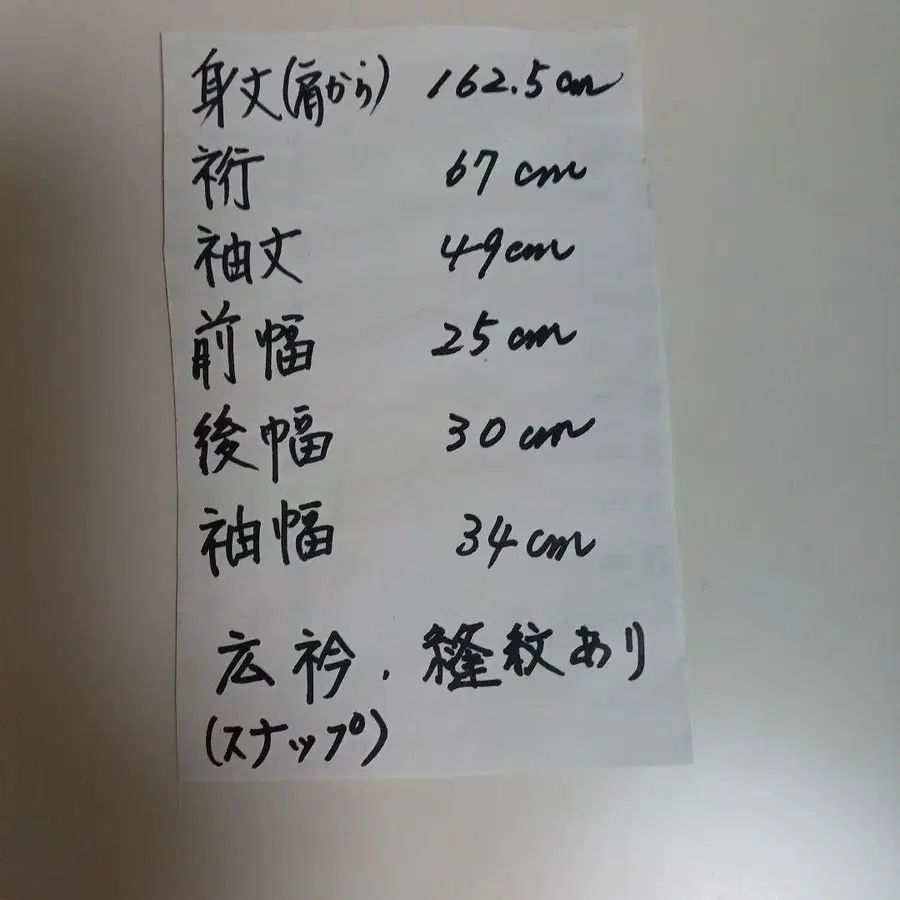 身丈(肩から) 162.5cm
裄 67cm
袖丈 49cm
前幅 25cm
後幅 30cm
袖幅 34cm
広衿、縫紋あり
(スナップ)